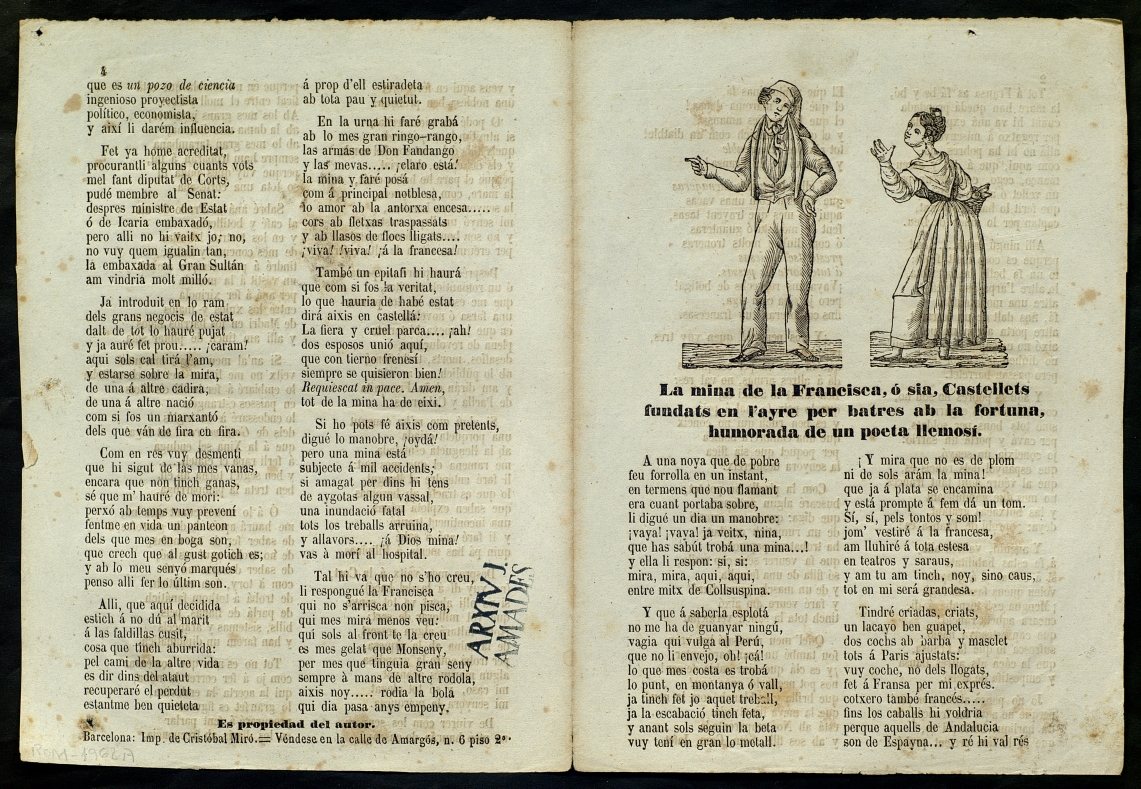 4
que es un pozo de ciencia
ingenioso proyectista
político, economista,
y aixi li darém influencia.
Fet ya home acreditat,
procurantli alguns cuants vots
mel fant diputat de Corts,
pudé membre al Senat:
despres ministre de Estat
ó de Icaria embaxadó,
pero alli no hi vaitx jo; no,
no vuy quem igualin tan,
la embaxada al Gran Sultán
am vindria molt milló.
Ja introduit en lo ram
dels grans negocis de estat
dalt de tot lo hauré pujat
y ja auré fet prou..... ¡caram!
aqui sols cal tirá l'am,
y estarse sobre la mira,
de una á altre cadira,
de una á altre nació
com si fos un marxantó
dels que ván de fira en fira.
Com en res vuy desmenti
que hi sigut de las mes vanas,
encara que non tinch ganas,
sé que m' hauré de mori:
perxó ab temps vuy prevení
fentme en vida un panteon
dels que mes en boga son,
que crech que al gust gotich es;
y ab lo meu senyó marqués
penso alli fer lo últim son.
Alli, que aquí decidida
estich á no dú al marit
á las faldillas cusit,
cosa que tinch aburrida:
pel cami de la altre vida
es dir dins del ataut
recuperaré el perdut
estantme ben quieteta
á prop d'ell estiradeta
ab tota pau y quietut.
En la urna hi faré grabá
ab lo mes gran ringo-rango,
las armás de Don Fandango
y las mevas..... ¡claro está!
la mina y faré posá
com á principal notblesa,
lo amor ab la antorxa encesa.....
cors ab fletxas traspassats
y ab llasos de flocs lligats....
¡viva! !viva! ¡á la francesa!
També un epitafi hi haurá
que com si fos la veritat,
lo que hauria de habé estat
dirá aixis en castellá:
La fiera y cruel parca.... ¡ah!
dos esposos unió aquí,
que con tierno frenesí
siempre se quisieron bien!
Requiescat in pace. Amen,
tot de la mina ha de eixi.
Si ho pots fé aixis com pretents,
digué lo manobre, ¡oydá!
pero una mina está
subjecte á mil accidents;
si amagat per dins hi tens
de aygotas algun vassal,
una inundació fatal
tots los treballs arruina,
y allavors.... ¡á Dios mina!
vas à morí al hospital.
Tal hi va que no s'ho creu,
li respongué la Francisca
qui no s'arrisca non pisca,
qui mes mira menos veu:
quí sols al front te la creu
es mes gelat que Monseny,
per mes que tinguia gran seny
sempre à mans de altre rodola,
aixis noy..... rodia la bola
qui dia pasa anys empeny.
Es propiedad del autor.
Barcelona: Imp. de Cristóbal Miró.= Véndese en la calle de Amargós, n. 6 piso 2º.
ARXIV J.
AMADES
La mina de la Francisca, ó sia, Castellets
fundats en l'ayre per batres ab la fortuna,
humorada de un poeta llemosí.
A una noya que de pobre
feu forrolla en un instant,
en termens que nou flamant
era cuant portaba sobre,
li digué un dia un manobre:
¡vaya! ¡vaya! ja veitx, nina,
que has sabút trobá una mina...!
y ella li respon: si, si:
mira, mira, aqui, aqui,
entre mitx de Collsuspina.
Y que á saberla esplotá
no me ha de guanyar ningú,
vagia qui vulga al Perú,
que no li envejo, oh! ¡cá!
lo que mes costa es trobá
lo punt, en montanya ó vall,
ja tinch fet jo aquet treball,
ja la escabació tinch feta,
y anant sols seguin la beta
vuy tení en gran lo metall.
¡Y mira que no es de plom
ni de sols arám la mina!
que ja á plata se encamina
y está prompte á fem dá un tom.
Sí, sí, pels tontos y som!
jom' vestiré á la francesa,
am lluhiré á tota estesa
en teatros y saraus,
y am tu am tinch, noy, sino caus,
tot en mi será grandesa.
Tindré criadas, criats,
un lacayo ben guapet,
dos cochs ab barba y masclet
tots á Paris ajustats:
vuy coche, no dels llogats,
fet á Fransa per mi exprés.
cotxero també francés.....
fins los caballs hi voldria
perque aquells de Andalucia
son de Espayna... y ré hi val rés